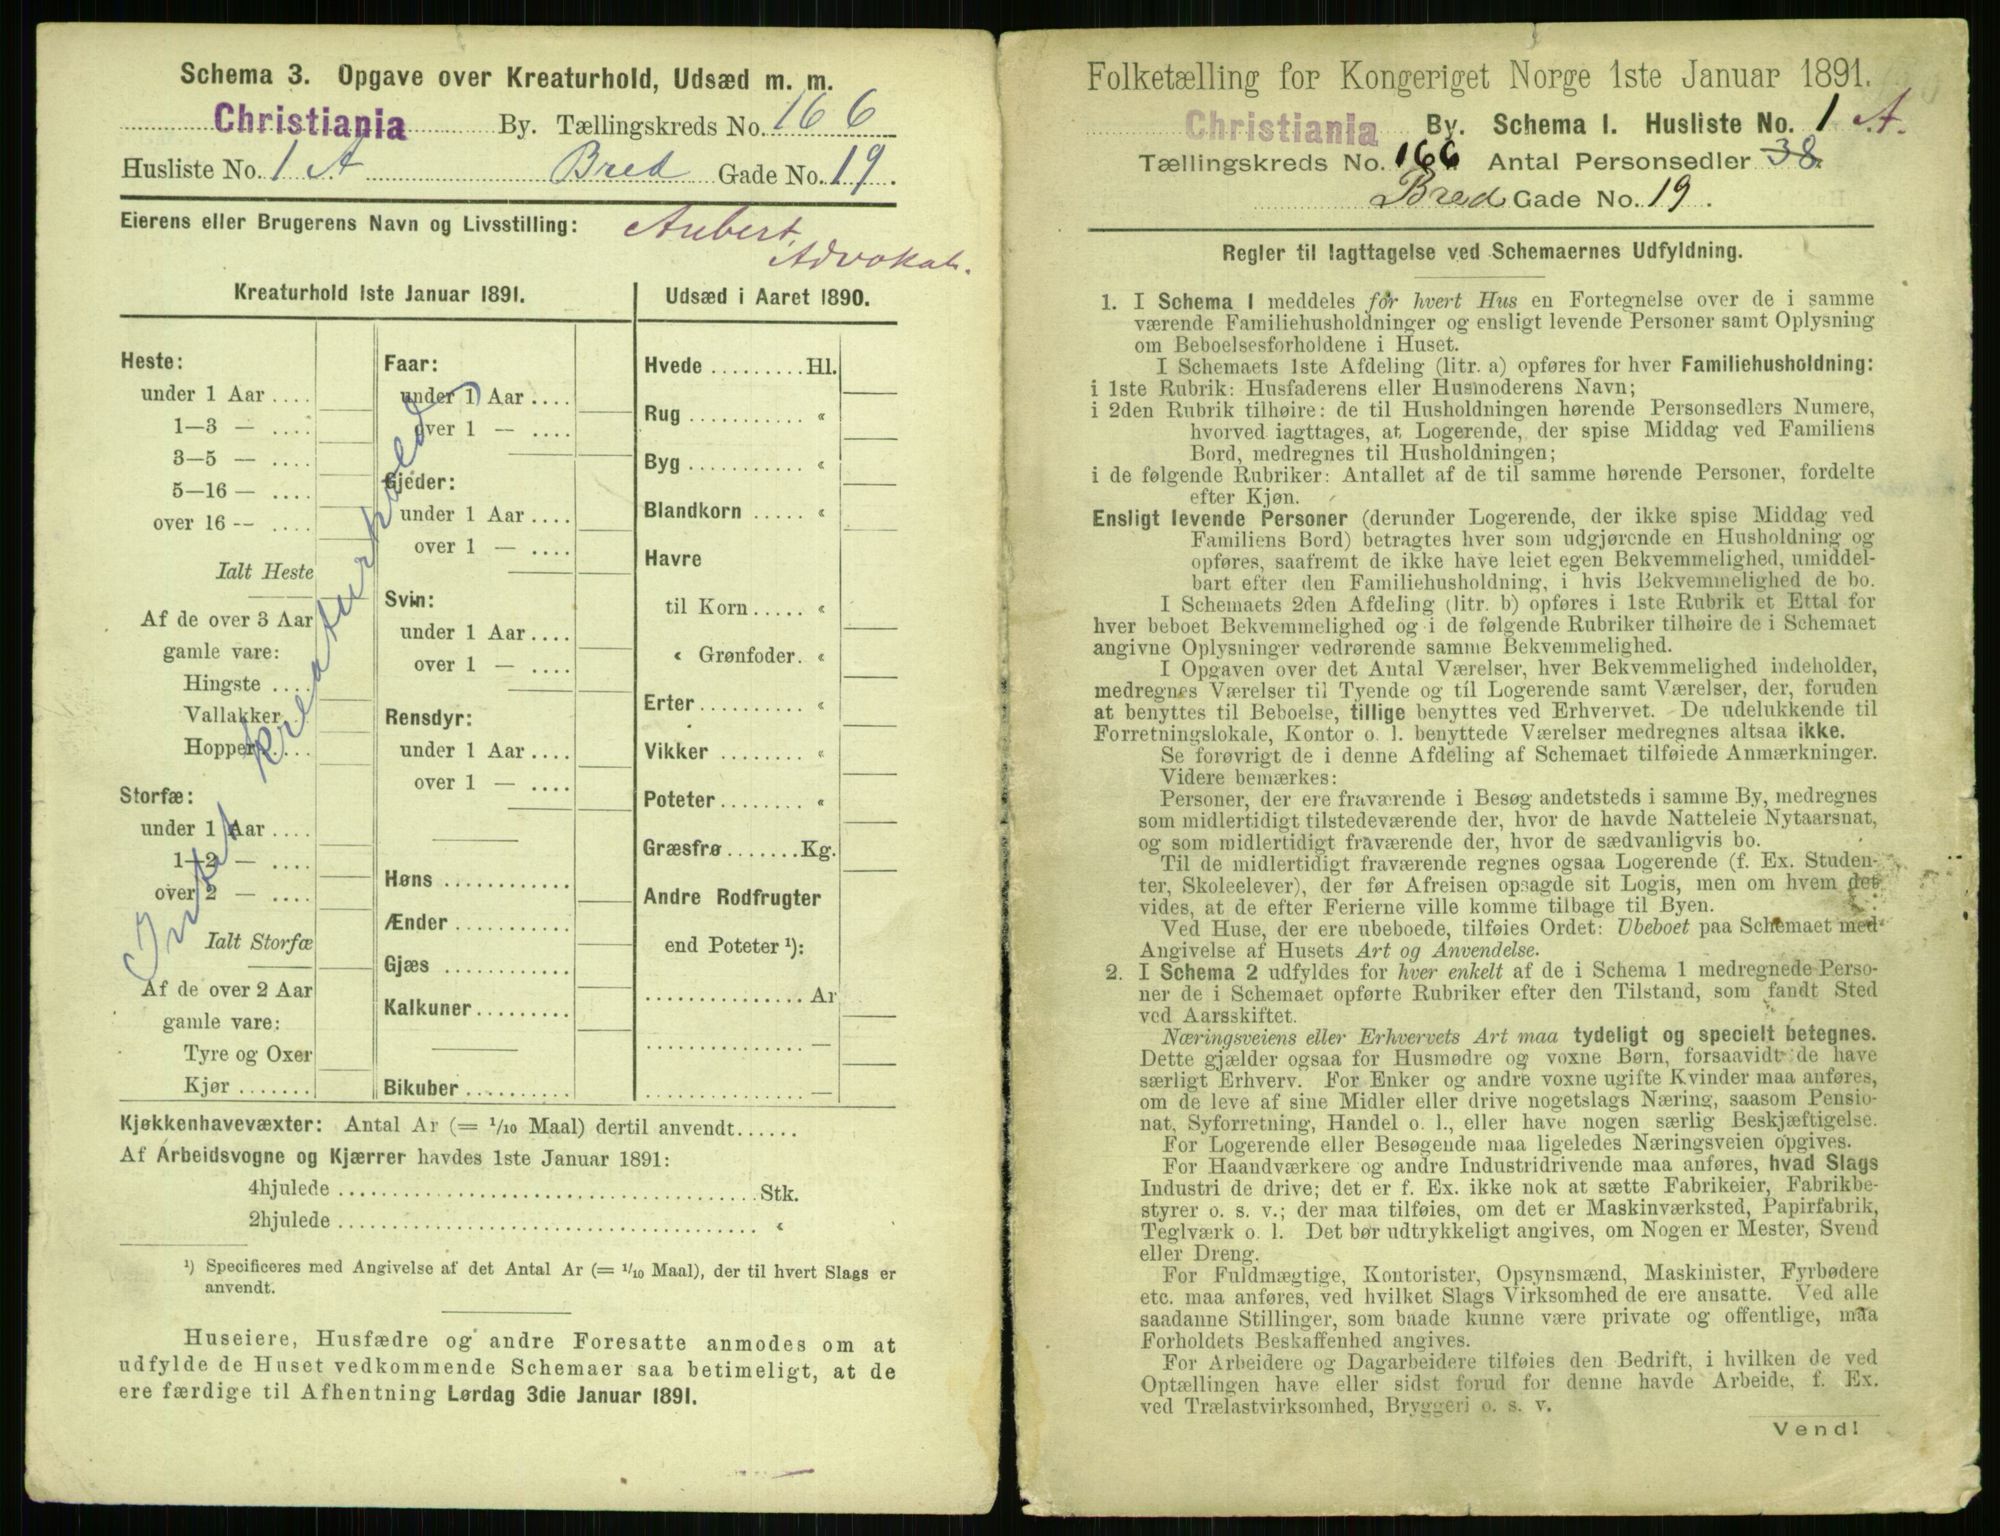 Schema 3. Opgave over Kreaturhold, Udsæd m. m.
Christiania By. Tællingskreds No. 166
Husliste No. 1 A Bred Gade No. 19.
Eierens eller Brugerens Navn og Livsstilling: Aubert,
Advokat.
Kreaturhold 1ste Januar 1891.
Heste:
under 1 Aar ....
1—3 — ....
3—5 — ....
5—16 — ....
over 16 -- ....
Ialt Heste
Af de over 3 Aar
gamle vare:
Hingste ....
Vallakker ..
Hopper ....
Storfæ:
under 1 Aar ....
1—2 — ....
over 2 — ....
Ialt Storfæ
Af de over 2 Aar
gamle vare:
Tyre og Oxer
Kjør .......
Intet Kreaturhold
Faar:
under 1 Aar ....
over 1 — ....
Gjeder:
under 1 Aar ....
over 1 — ....
Svin:
under 1 Aar ....
over 1 — ....
Rensdyr:
under 1 Aar ....
over 1 — ....
Høns ............
Ænder ...........
Gjæs ............
Kalkuner.........
Bikuber ..........
Udsæd i Aaret 1890.
Hvede ......... Hl.
Rug ........... «
Byg ........... «
Blandkorn ..... «
Havre
til Korn ..... «
« Grønfoder. «
Erter .......... «
Vikker ........ «
Poteter ........ «
Græsfrø ....... Kg.
Andre Rodfrugter
end Poteter ¹):
............... Ar
............... —
............... —
Kjøkkenhavevæxter: Antal Ar (= 1/10 Maal) dertil anvendt......
Af Arbeidsvogne og Kjærrer havdes 1ste Januar 1891:
4hjulede ........................................ Stk.
2hjulede ........................................ «
¹) Specificeres med Angivelse af det Antal Ar (= 1/10 Maal), der til hvert Slags er
anvendt.
Huseiere, Husfædre og andre Foresatte anmodes om at
udfylde de Huset vedkommende Schemaer saa betimeligt, at de
ere færdige til Afhentning Lørdag 3die Januar 1891.
Folketælling for Kongeriget Norge 1ste Januar 1891.
Christiania By. Schema 1. Husliste No. 1 A.
Tællingskreds No. 166 Antal Personsedler 38.
Bred Gade No. 19.
Regler til Iagttagelse ved Schemaernes Udfyldning.
1. I Schema 1 meddeles for hvert Hus en Fortegnelse over de i samme
værende Familiehusholdninger og ensligt levende Personer samt Oplysning
om Beboelsesforholdene i Huset.
I Schemaets 1ste Afdeling (litr. a) opføres for hver Familiehusholdning:
i 1ste Rubrik: Husfaderens eller Husmoderens Navn;
i 2den Rubrik tilhøire: de til Husholdningen hørende Personsedlers Numere,
hvorved iagttages, at Logerende, der spise Middag ved Familiens
Bord, medregnes til Husholdningen;
i de følgende Rubriker: Antallet af de til samme hørende Personer, fordelte
efter Kjøn.
Ensligt levende Personer (derunder Logerende, der ikke spise Middag ved
Familiens Bord) betragtes hver som udgjørende en Husholdning og
opføres, saafremt de ikke have leiet egen Bekvemmelighed, umiddel-
bart efter den Familiehusholdning, i hvis Bekvemmelighed de bo.
I Schemaets 2den Afdeling (litr. b) opføres i 1ste Rubrik et Ettal for
hver beboet Bekvemmelighed og i de følgende Rubriker tilhøire de i Schemaet
angivne Oplysninger vedrørende samme Bekvemmelighed.
I Opgaven over det Antal Værelser, hver Bekvemmelighed indeholder,
medregnes Værelser til Tyende og til Logerende samt Værelser, der, foruden
at benyttes til Beboelse, tillige benyttes ved Erhvervet. De udelukkende til
Forretningslokale, Kontor o. l. benyttede Værelser medregnes altsaa ikke.
Se forøvrigt de i denne Afdeling af Schemaet tilføiede Anmærkninger.
Videre bemærkes:
Personer, der ere fraværende i Besøg andetsteds i samme By, medregnes
som midlertidigt tilstedeværende der, hvor de havde Natteleie Nytaarsnat,
og som midlertidigt fraværende der, hvor de sædvanligvis bo.
Til de midlertidigt fraværende regnes ogsaa Logerende (f. Ex. Studen-
ter, Skoleelever), der før Afreisen opsagde sit Logis, men om hvem det
vides, at de efter Ferierne ville komme tilbage til Byen.
Ved Huse, der ere ubeboede, tilføies Ordet: Ubeboet paa Schemaet med
Angivelse af Husets Art og Anvendelse.
2. I Schema 2 udfyldes for hver enkelt af de i Schema 1 medregnede Perso-
ner de i Schemaet opførte Rubriker efter den Tilstand, som fandt Sted
ved Aarsskiftet.
Næringsveiens eller Erhvervets Art maa tydeligt og specielt betegnes.
Dette gjælder ogsaa for Husmødre og voxne Børn, forsaavidt de have
særligt Erhverv. For Enker og andre voxne ugifte Kvinder maa anføres,
om de leve af sine Midler eller drive nogetslags Næring, saasom Pensio-
nat, Syforretning, Handel o. l., eller have nogen særlig Beskjæftigelse.
For Logerende eller Besøgende maa ligeledes Næringsveien opgives.
For Haandværkere og andre Industridrivende maa anføres, hvad Slags
Industri de drive; det er f. Ex. ikke nok at sætte Fabrikeier, Fabrikbe-
styrer o. s. v.; der maa tilføies, om det er Maskinværksted, Papirfabrik,
Teglværk o. l. Det bør udtrykkeligt angives, om Nogen er Mester, Svend
eller Dreng.
For Fuldmægtige, Kontorister, Opsynsmænd, Maskinister, Fyrbødere
etc. maa anføres, ved hvilket Slags Virksomhed de ere ansatte. Ved alle
saadanne Stillinger, som baade kunne være private og offentlige, maa
Forholdets Beskaffenhed angives.
For Arbeidere og Dagarbeidere tilføies den Bedrift, i hvilken de ved
Optællingen have eller sidst forud for denne havde Arbeide, f. Ex.
ved Trælastvirksomhed, Bryggeri o. s. v.
Vend!